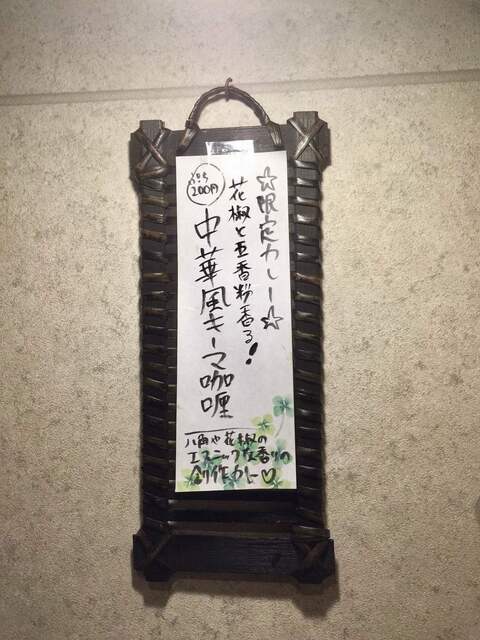 ☆限定カレー☆
花椒と五香粉香る!
中華風キーマ咖喱
ぷち
200円
八角や花椒の
エスニックな香りの
創作カレー♡